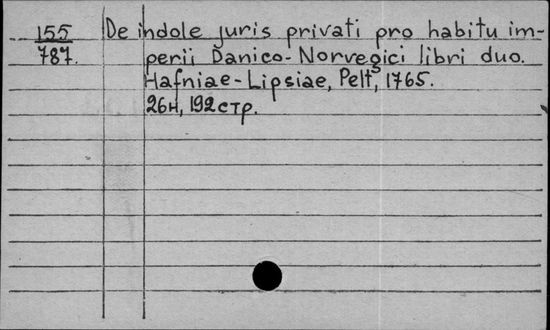 155
787.
De indole juris privati pro habitu im-
perii Danico-Norvegici libri duo.
Hafniae-Lipsiae, Pelt, 1765.
26н, 192 стр.